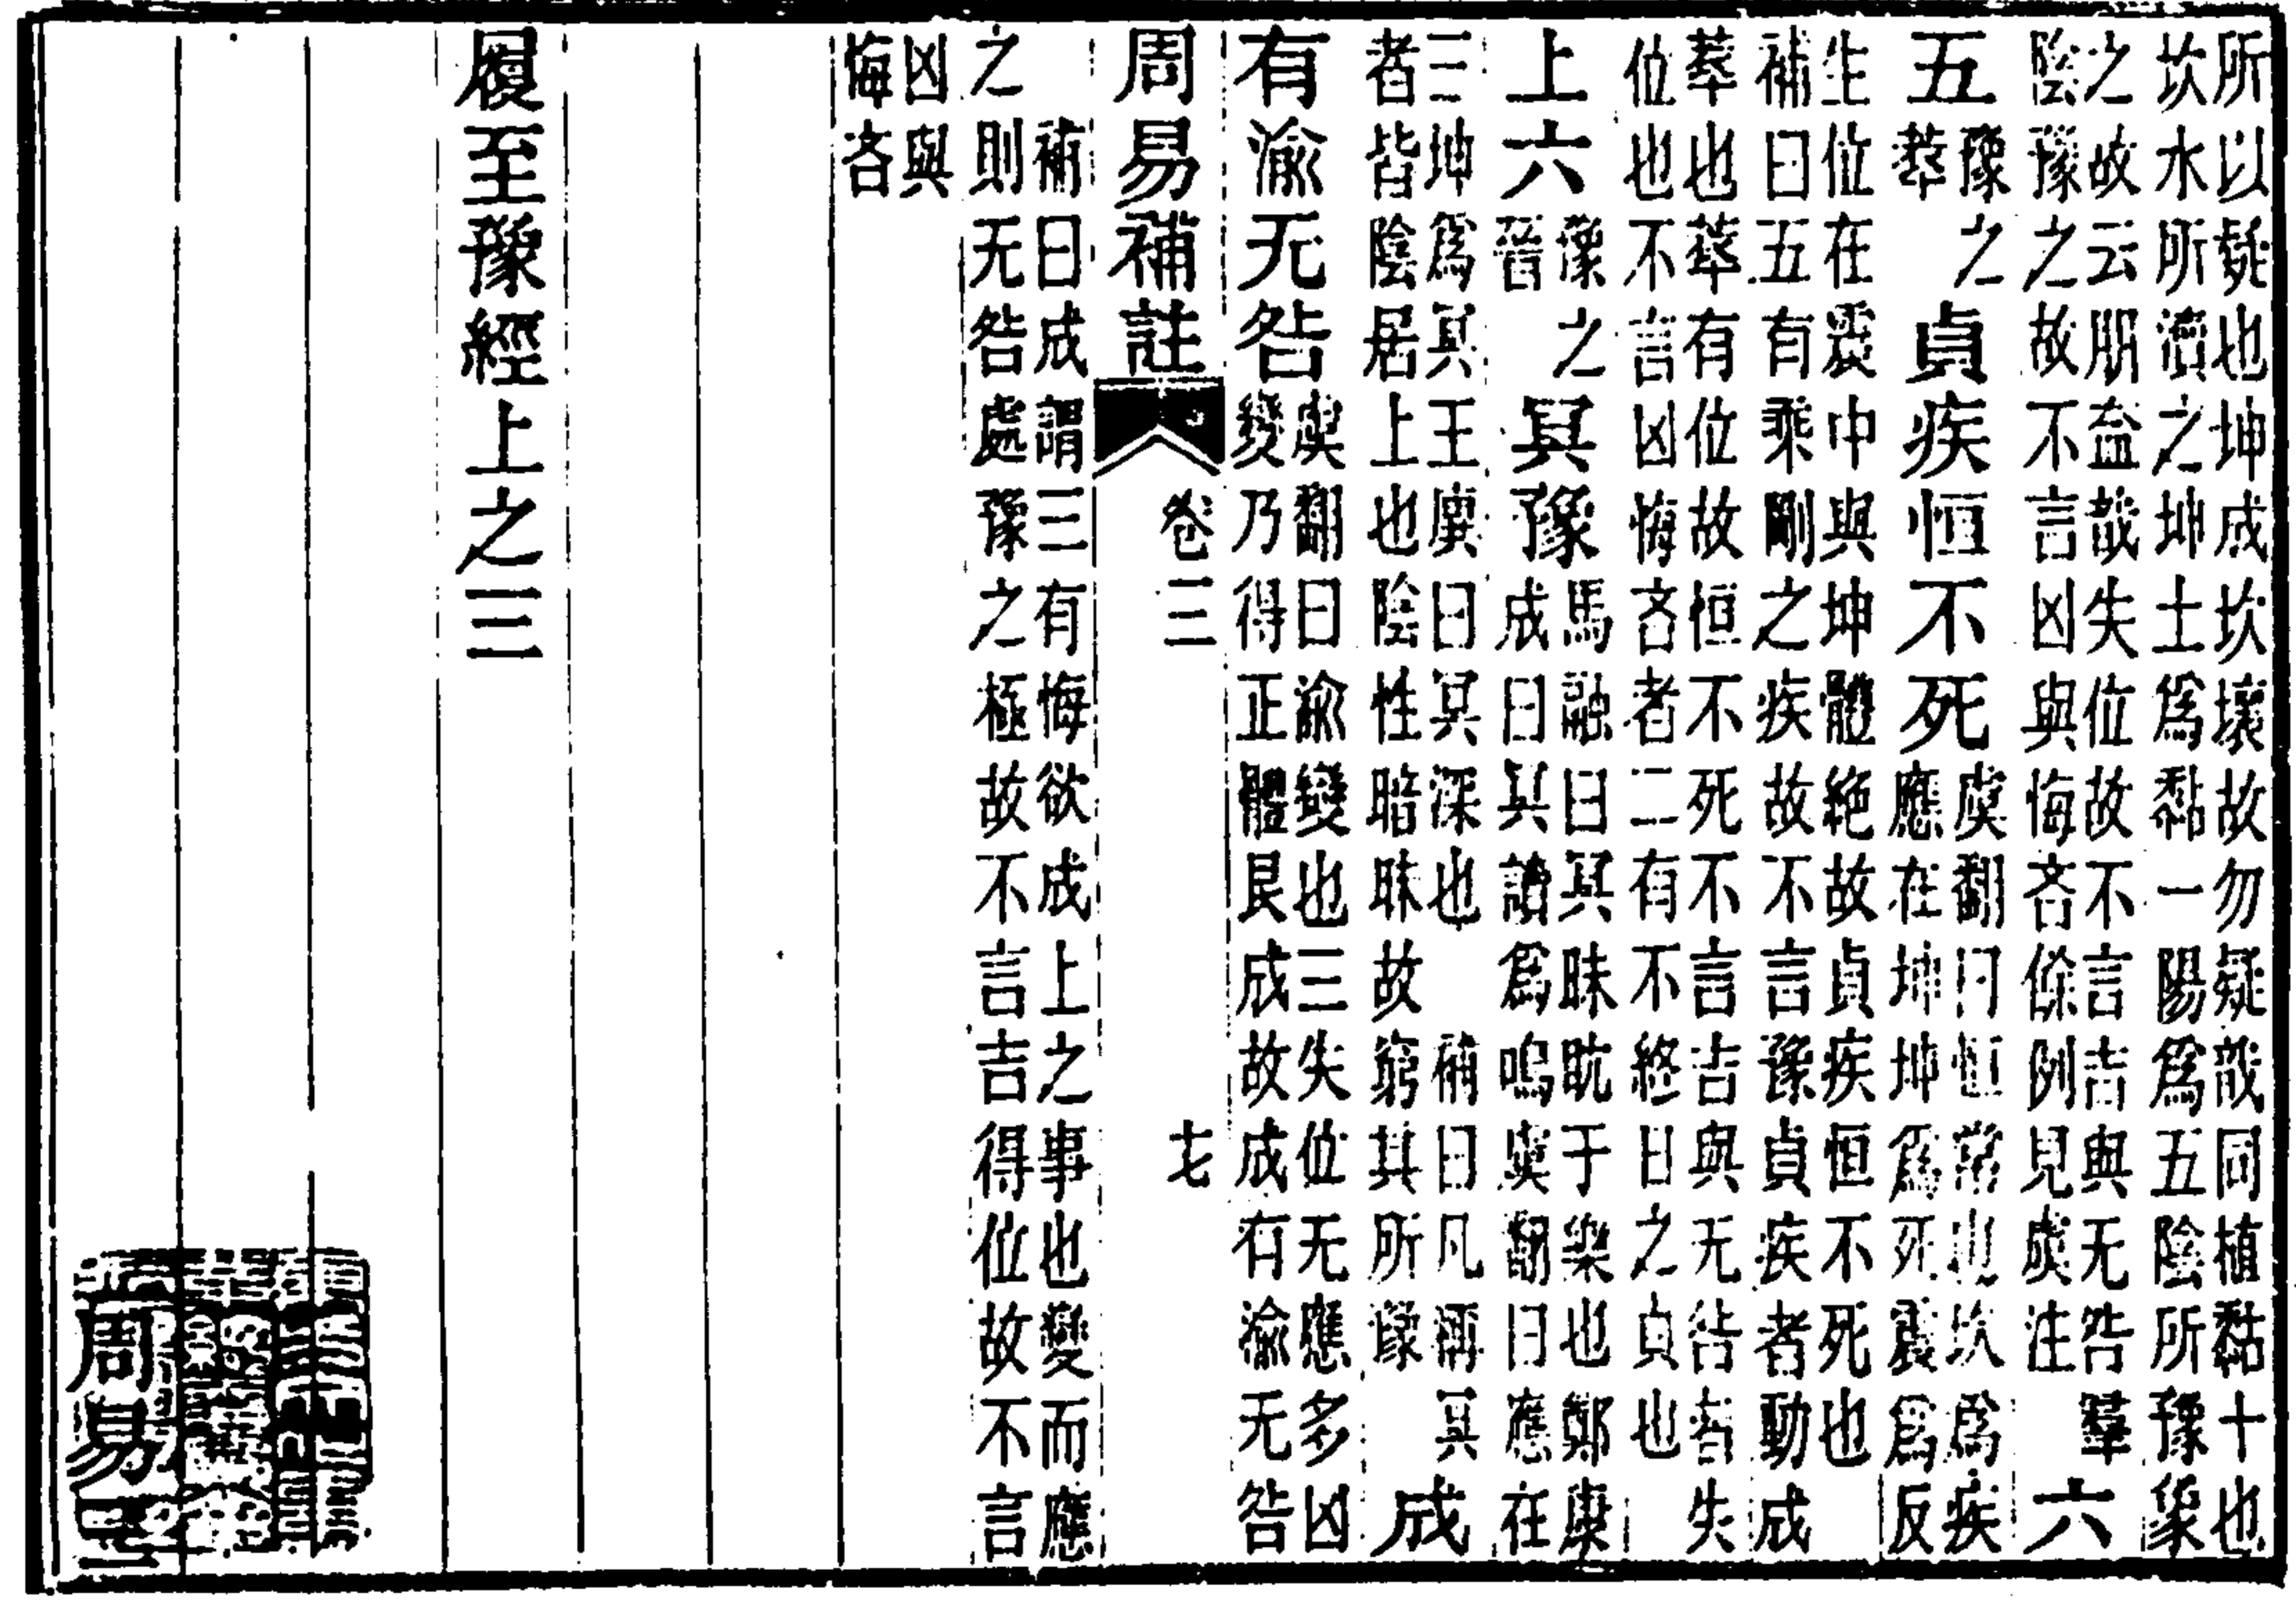 所以疑也坤成坎壞故勿疑哉同植黏十也
坎水所濟之坤土爲黏一陽爲五陰所豫象
之故云朋盍哉失位故不言吉與无咎羣
陰豫之故不言凶與悔吝餘例見虞注
六
五
豫之
萃
貞疾恒不死
虞翻曰恒常也坎爲疾
應在坤坤爲死震爲反
生位在震中與坤體絶故貞疾恒不死也
補曰五有乘剛之疾故不言豫貞疾者動成
萃也萃有位故恒不死不言吉與无咎者失
位也不言凶悔吝者二有不終日之貞也
上六
豫之
晉
冥豫
馬融曰冥昧眈于樂也鄭康
成曰冥讀爲鳴虞翻曰應在
三坤爲冥王廙曰冥深也 補曰凡稱冥
者皆陰居上也陰性暗昧故窮其所豫
成
有渝无咎
虞翻曰渝變也三失位无應多凶
變乃得正體艮成故成有渝无咎
周易補註 卷三 十七
補曰成謂三有悔欲成上之事也變而應
之則无咎處豫之極故不言吉得位故不言
凶與
悔吝
履至豫經上之三
周易三